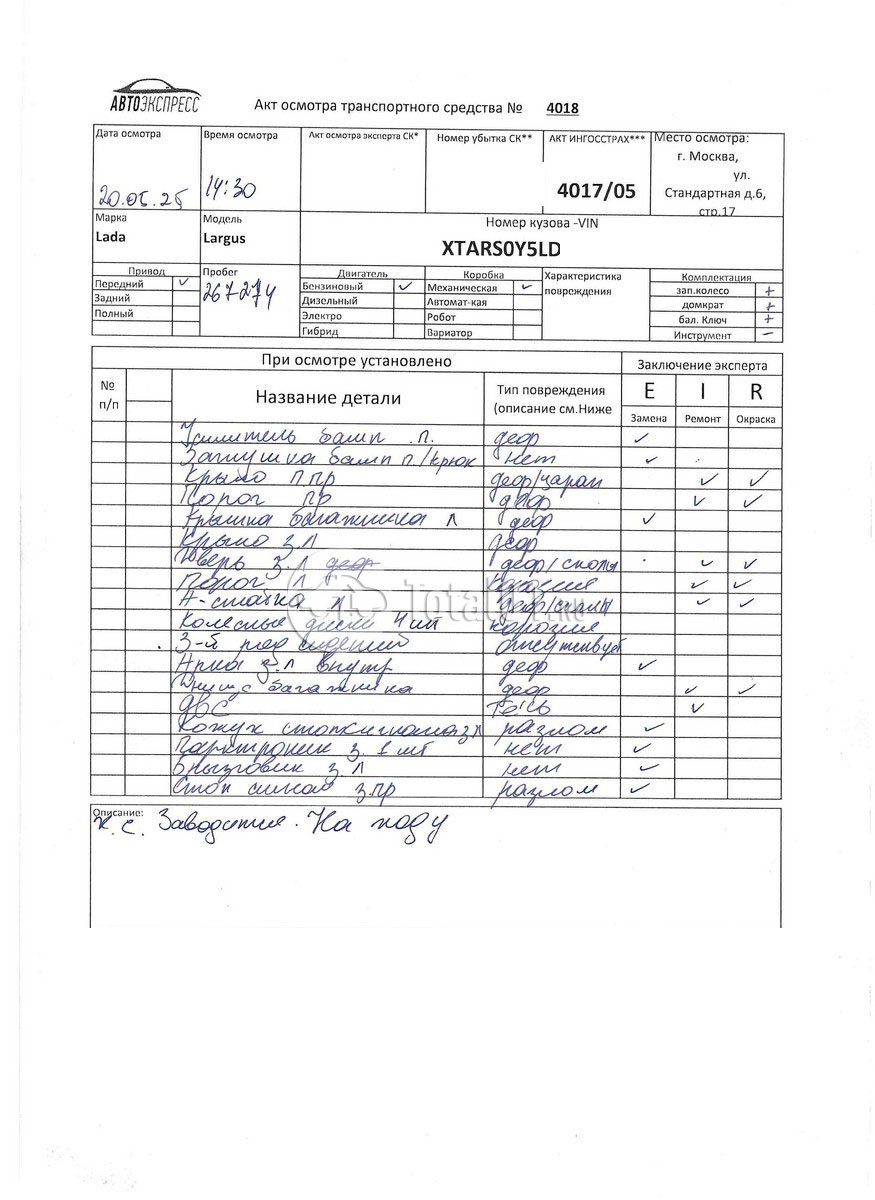 АВТОЭКСПРЕСС
Акт осмотра транспортного средства № 4018
Дата осмотра Время осмотра Акт осмотра эксперта СК* Номер убытка СК** АКТ ИНГОССТРАХ*** Место осмотра:
г. Москва,
ул.
20.05.25 14:30 4017/05 Стандартная д.6,
стр.17
Марка Модель Номер кузова -VIN
Lada Largus
XTARS0Y5LD
Привод Пробег Двигатель Коробка Характеристика Комплектация
Передний ✓ 267274 Бензиновый ✓ Механическая ✓ повреждения зап.колесо +
Задний Дизельный Автомат-кая домкрат +
Полный Электро Робот бал. Ключ +
Гибрид Вариатор Инструмент –
При осмотре установлено Заключение эксперта
№ п/п Название детали Тип повреждения (описание см.Ниже E I R
Замена Ремонт Окраска
Усилитель бамп .п. деф ✓
Заглушка бамп п./крюк нет ✓
Крыло п пр деф/царап ✓ ✓
Порог пр деф ✓ ✓
Крышка багажника л деф ✓
Крыло з.л деф
Дверь з.л деф деф/сколы ✓ ✓
Порог л корозия ✓ ✓
А-стойка л деф/сколы ✓ ✓
Колесные диски 4 шт корозия
3-й ряд сидений отсутствует
Арка з.л внутр деф ✓
Днище багажника деф ✓ ✓
ДВС течь ✓
Кожух стопсигнала з л разлом ✓
Парктроник з. 1 шт нет ✓
Брызговик з л нет ✓
Стоп сигнал з.пр разлом ✓
Описание:
К.С. Заводится. На ходу
TotalCar.RU